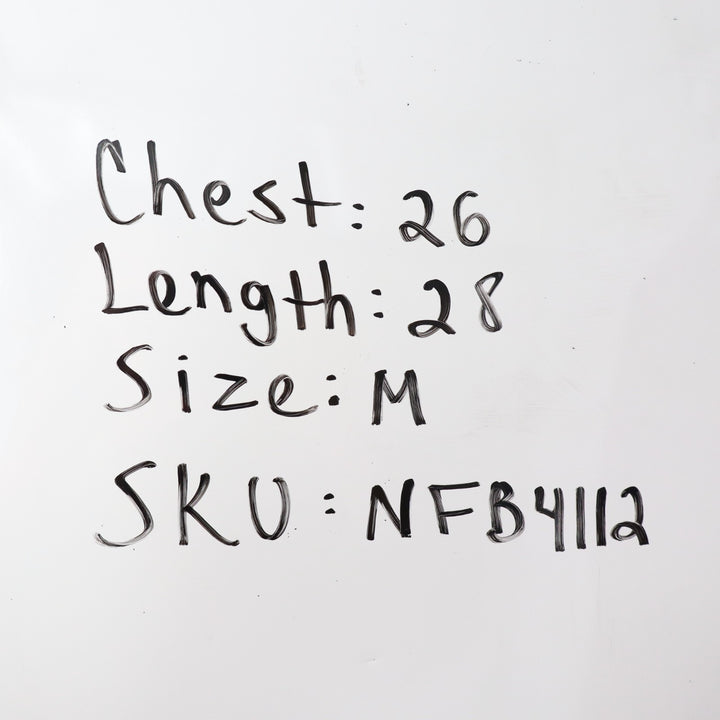 Chest: 26
Length: 28
Size: M
SKU: NFB4112